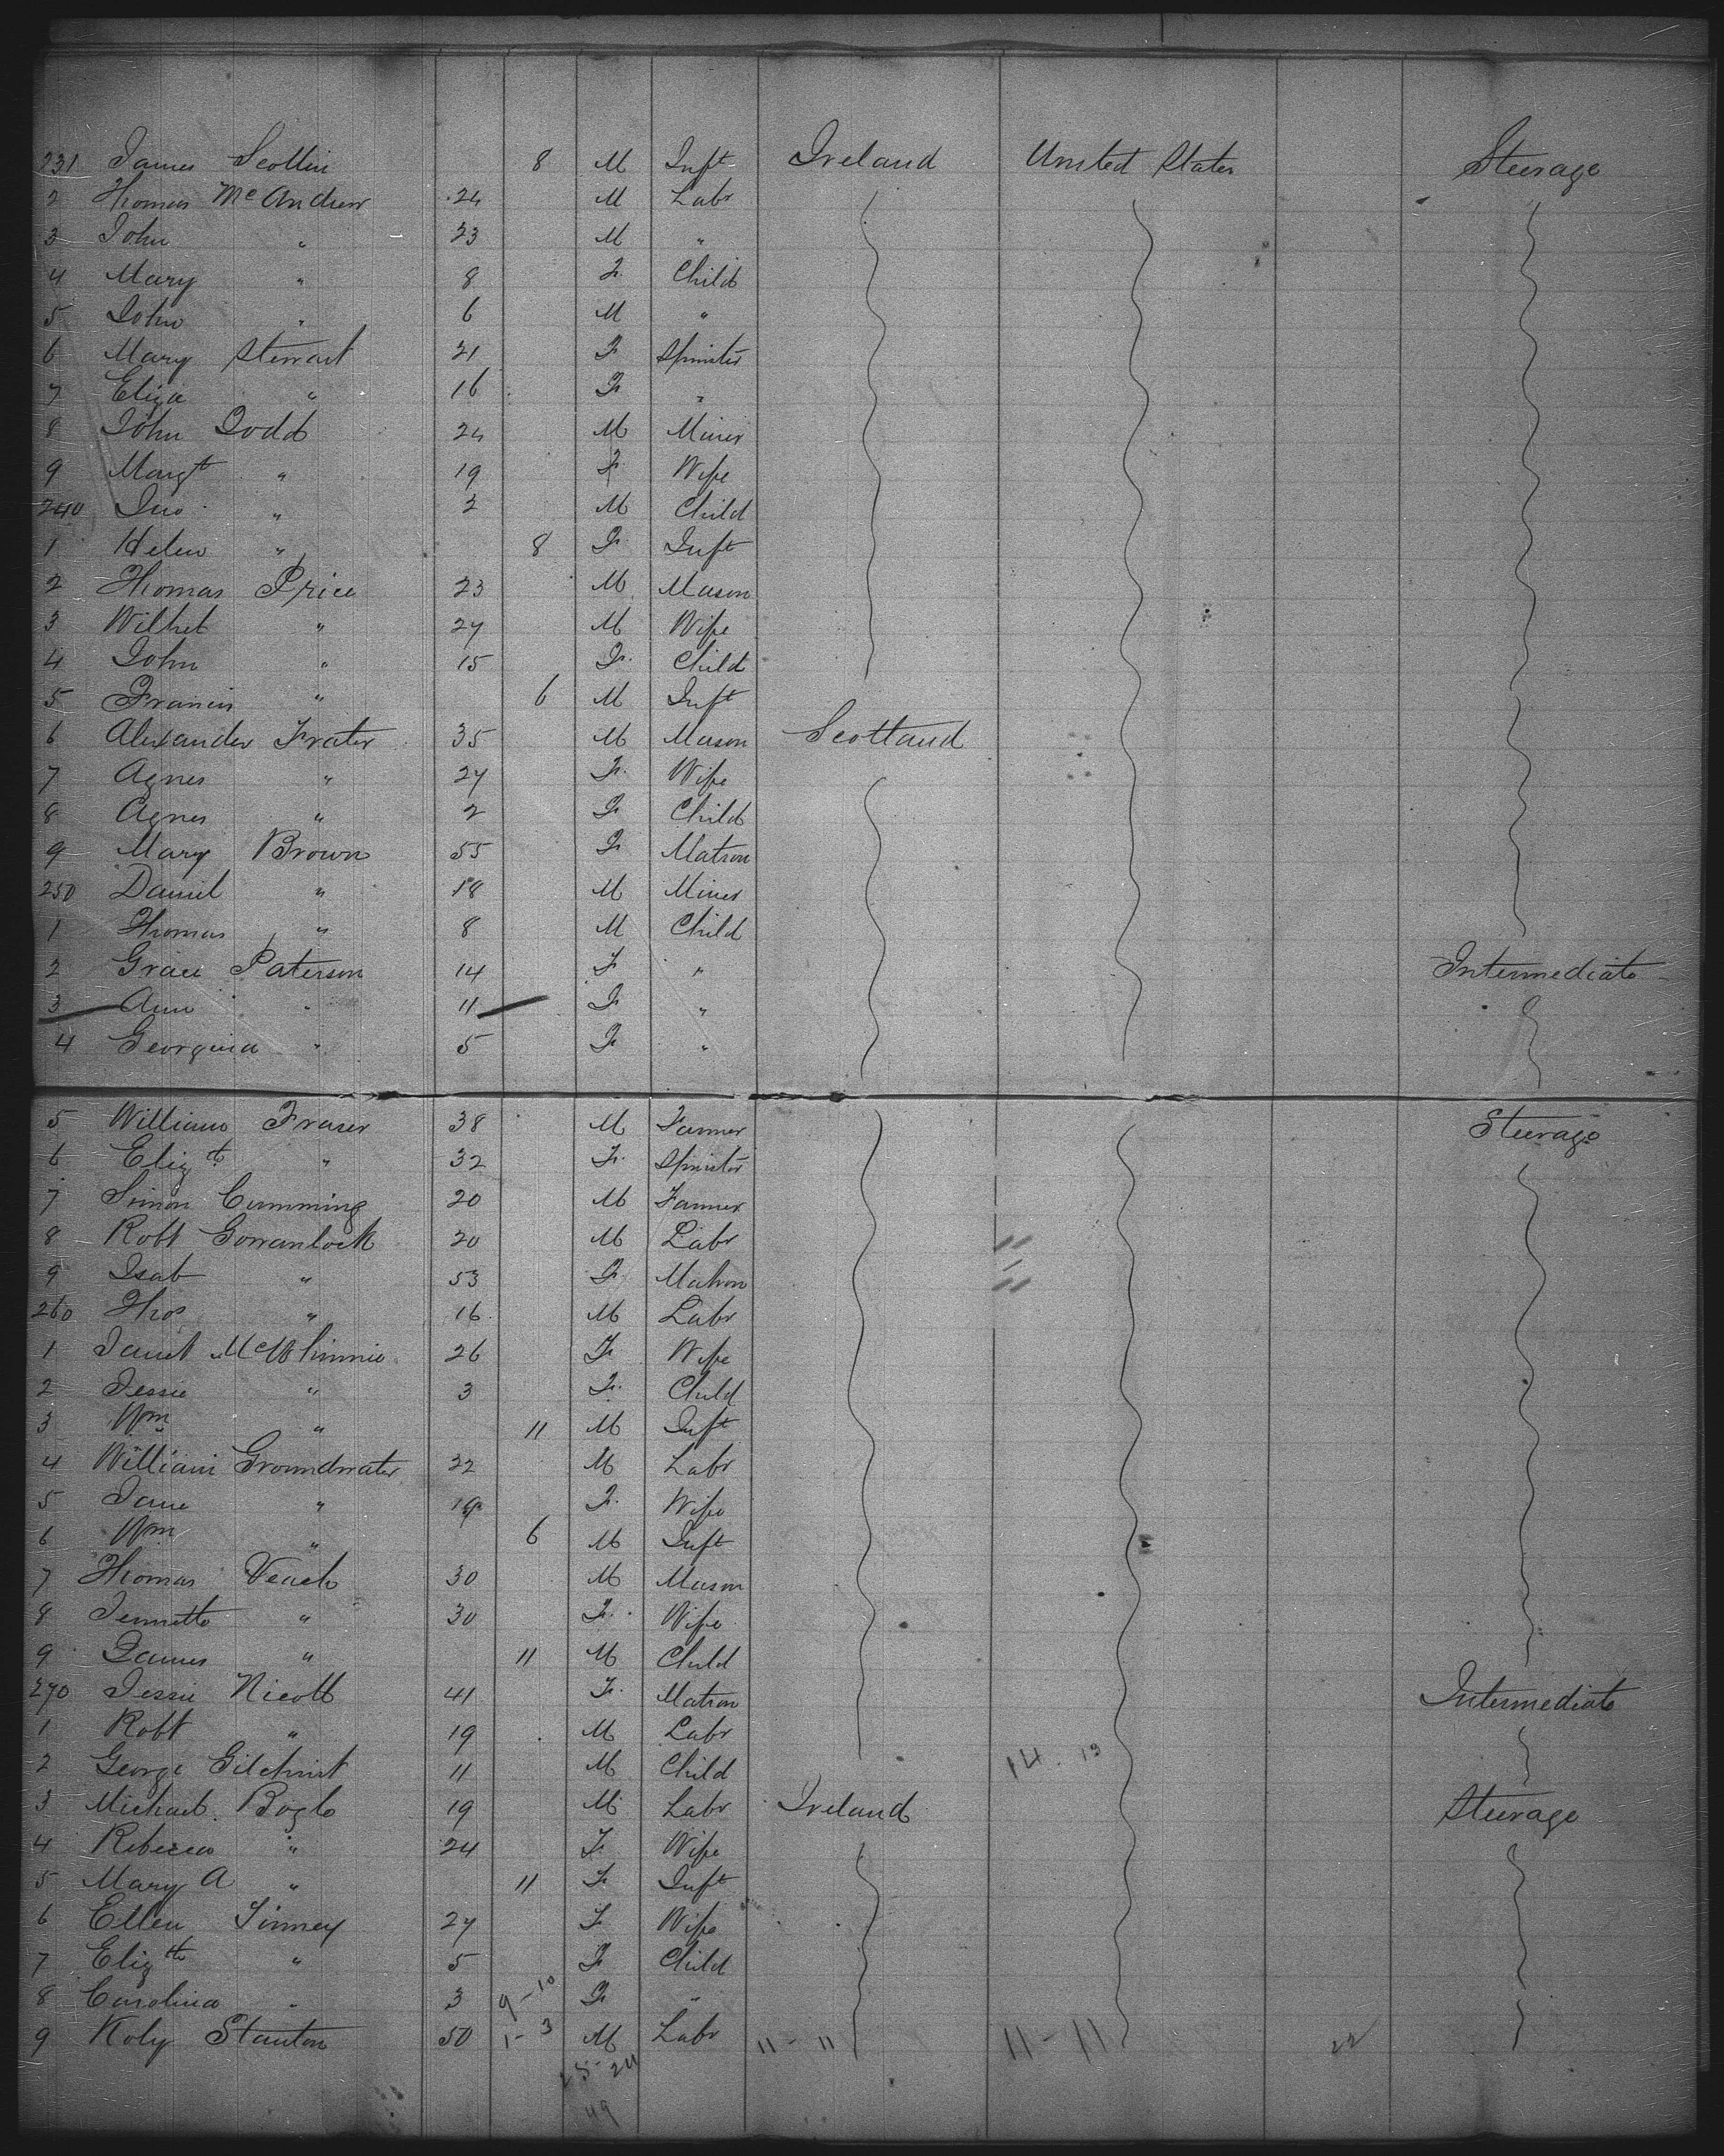 231 James Scollin 8 M Inft Ireland United States Steerage
2 Thomas McAndrew 24 M Labr
3 John " 23 M "
4 Mary " 8 F. Child
5 John " 6 M "
6 Mary Stewart 21 F Spinster
7 Eliza " 16 F "
8 John Dodd 24 M Miner
9 Margt " 19 F Wife
240 Jno " 2 M Child
1 Helen " 8 F Inft
2 Thomas Price 23 M Mason
3 " 27 M Wife
4 John " 15 F. Child
5 Francis " 6 M Inft
6 Alexander Frater 35 M Mason Scotland
7 Agnes " 27 F. Wife
8 Agnes " 2 F Child
9 Mary Brown 55 F Matron
250 Daniel " 18 M Miner
1 Thomas " 8 M Child
2 Grace Paterson 14 F " Intermediate
3 Ann " 11 F "
4 Georgina " 5 F "
5 William Fraser 38 M Farmer Steerage
6 Elizth " 32 F. Spinster
7 Simon Cumming 20 M Farmer
8 Robt Gowanlock 20 M Labr
9 Isab " 53 F Matron
260 Thos " 16 M Labr
1 Janet McWhinnie 26 F Wife
2 Jessie " 3 F. Child
3 Wm " 11 M Inft
4 William Groundwater 22 M Labr
5 Jane " 19 F. Wife
6 Wm " 6 M Inft
7 Thomas Veach 30 M Mason
8 Jennette " 30 F. Wife
9 James " 11 M Child
270 Jessie Nicoll 41 F. Matron Intermediate
1 Robt " 19 M Labr
2 George Gilchrist 11 M Child 14. 13
3 Michael Bogle 19 M Labr Ireland Steerage
4 Rebecca " 24 F. Wife
5 Mary A " 11 F Inft
6 Ellen Finney 27 F Wife
7 Elizth " 5 F Child
8 Carolina " 3 9-10 F "
9 Koly Stanton 50 1-3 M Labr 11-11 11-11 22
25-24
49